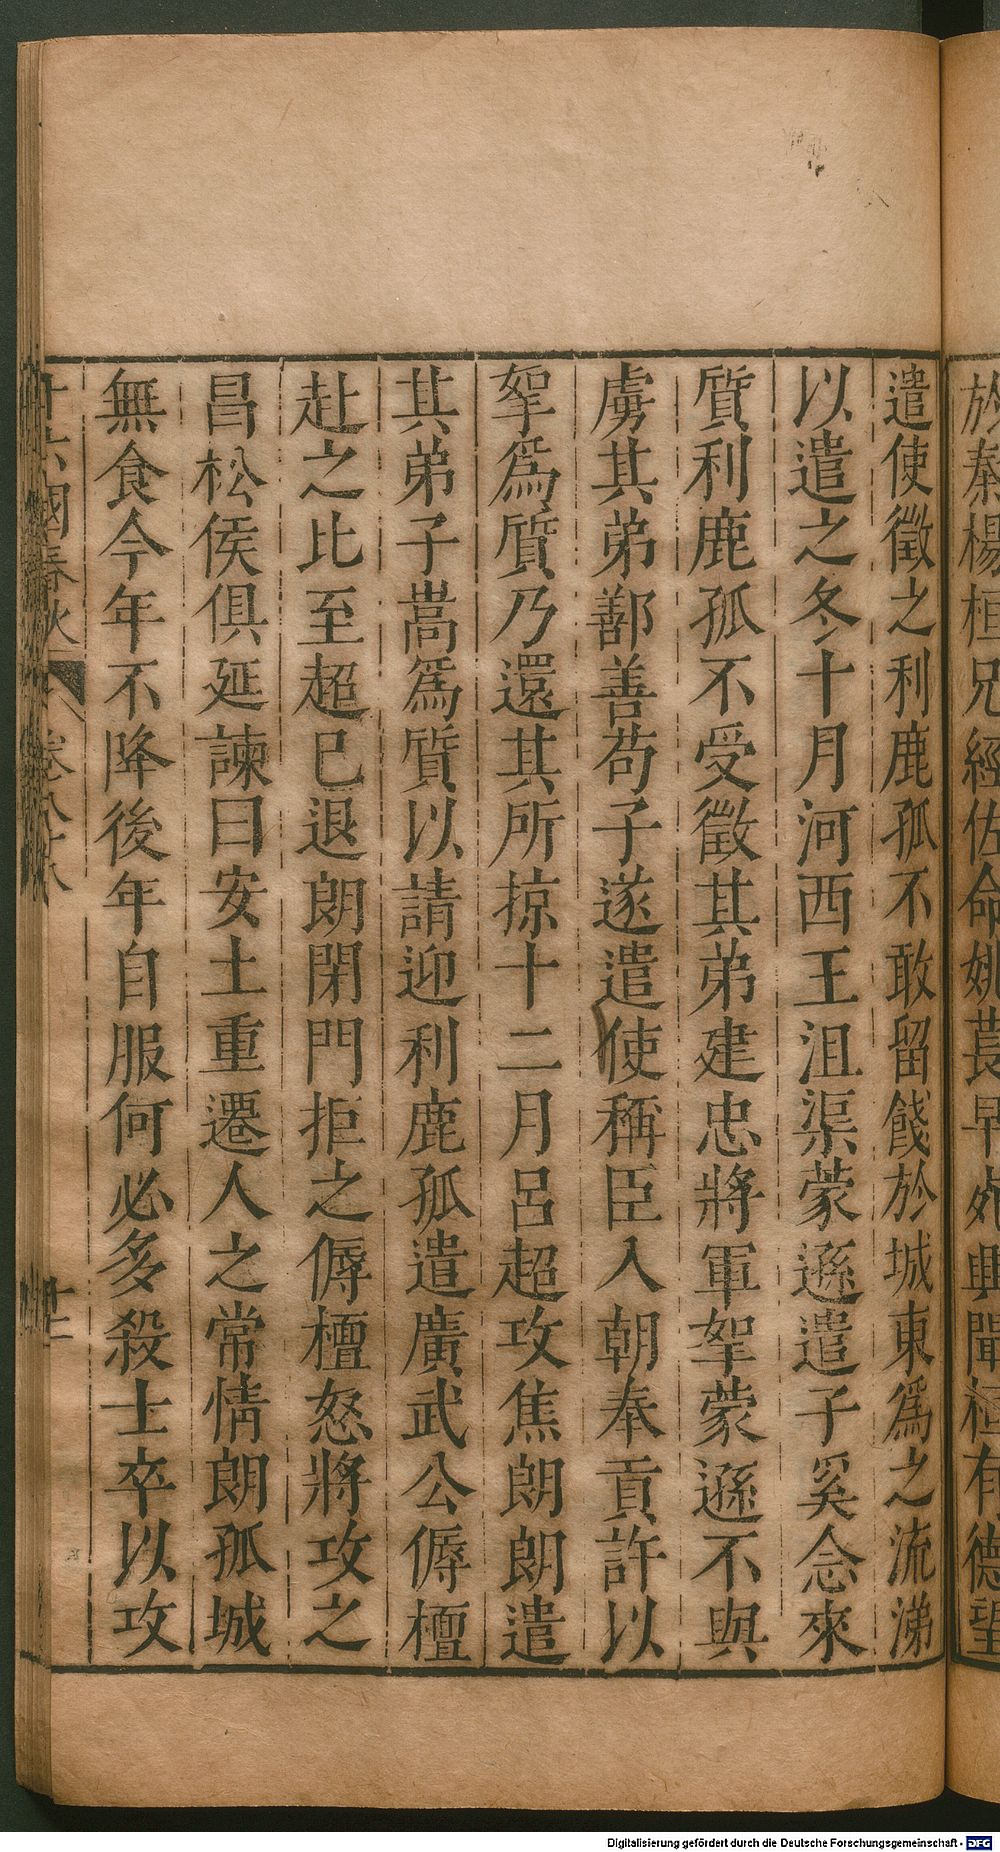 於秦楊桓兄經佐命姚萇早死興聞桓有德望
遣使徵之利鹿孤不敢留餞於城東爲之流涕
以遣之冬十月河西王沮渠蒙遜遣子奚念來
質利鹿孤不受徵其弟建忠將軍挐蒙遜不與
虜其弟鄯善苟子遂遣使稱臣入朝奉貢許以
挐爲質乃還其所掠十二月呂超攻焦朗朗遣
其弟子嵩爲質以請迎利鹿孤遣廣武公傉檀
赴之比至超已退朗閉門拒之傉檀怒將攻之
昌松侯俱延諫曰安土重遷人之常情朗孤城
無食今年不降後年自服何必多殺士卒以攻
十六國春秋 卷八十八 十二
Digitalisierung gefördert durch die Deutsche Forschungsgemeinschaft - DFG